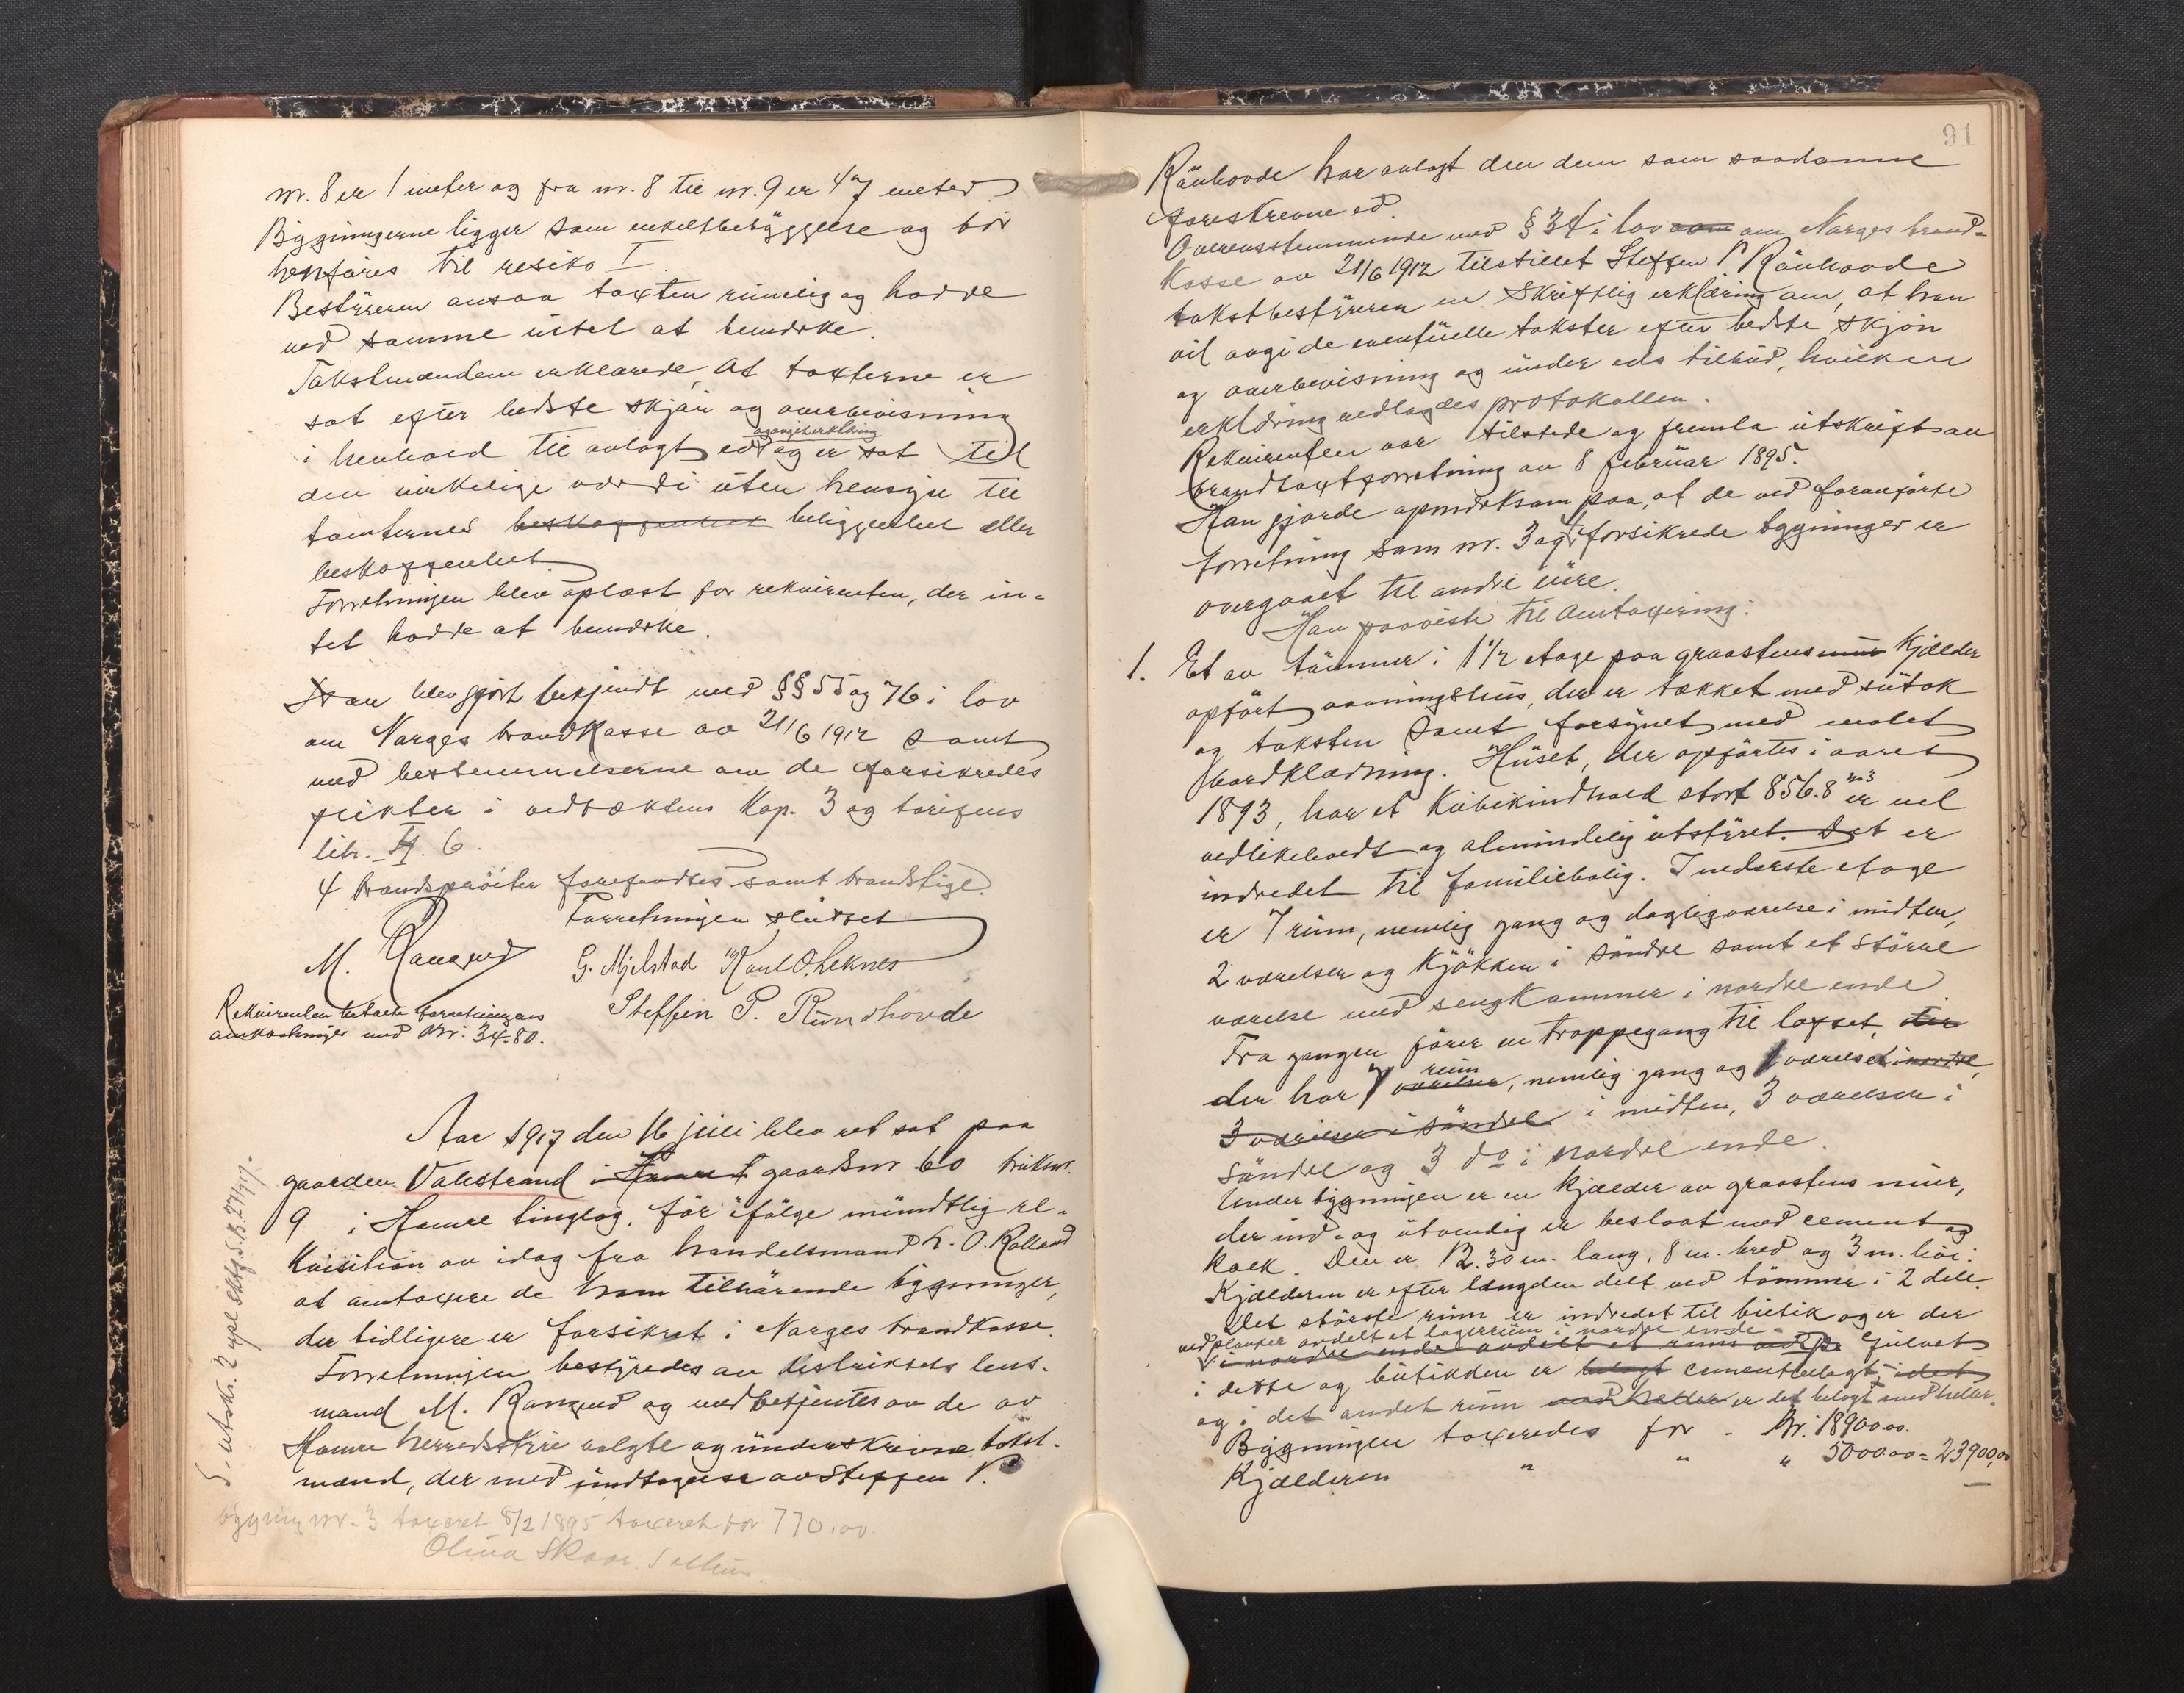 nr. 8 er 1 meter og fra nr. 8 til nr. 9 er 47 meter.
Bygningerne ligger som enkeltbebyggelse og bör
henföres til resiko I
Bestyreren ansaa taxten rimelig og hadde
ved samme intet at bemerke.
Takstmændene erklærede, at taxterne er
sat efter bedste skjön og overbevisning
i henhold til avlagt ed og er sat til
den virkelige værdi uten hensyn til
tomternes beskaffenhet beliggenhet eller
beskaffenhet.
Forretningen blev oplæst for rekvirenten, der in-
tet hadde at bemerke.
Han blev gjort bekjendt med §§ 55 og 76 i lov
om Norges brandkasse av 21/6 1912 samt
med bestemmelserne om de forsikredes
pikter i vedtæktens Kap. 3 og tarifens
litr. H. 6.
4 brandspröiter forefandtes samt brandstige.
Forretningen sluttet
M. G. Mjelstad Karl O. Leknes
Steffen P. Rundhovde
Rekvirenten betalte forretningens
omkostninger med Kr: 34.80.
Aar 1917 den 16 juli blev ret sat paa
gaarden Valestrand i Hamre gaardsnr 60 bruksnr.
9 i Hamre tinglag, för ifölge mundtlig re-
kvisition av idag fra handelsmand L. O. Rolland
at omtaxere de ham tilhörende bygninger,
der tidligere er forsikret i Norges brandkasse.
Forretningen bestyredes av distriktets lens-
mand M. og medbetjentes av de av
Hamre herredsstyre valgte og underskrevne takst-
mænd, der med undtagelse av Steffen P.
bygning nr. 3 taxeret 8/2 1895 taxeret for 770.00.
Olina Skaar
91
Rönhovde har avlagt den dem som saadanne
foreskrevne ed.
Overensstemmende med § 34 i lov som om Norges brand-
kasse av 21/6 1912 tilstillet Steffen P Rönhovde
takstbestyreren en skriftlig erklæring om, at han
vil avgi de eventuelle takster efter bedste skjön
og overbevisning og under eds tilbud, hvilken
erklæring vedlagdes protokollen.
Rekvirenten var tilstede og fremla utskrift av
brandtaxtforretning av 8 februar 1895.
Han gjorde opmerksom paa, at de ved foranförte
forretning som nr. 3 og 4 forsikrede bygninger er
overgaaet til andre eiere.
Han paaviste til omtaxering:
1. Et av tömmer i 1 1/2 etage paa graastensmur Kjælder
opfört vaaningshus, der er tækket med sutak
og taksten samt forsynet med malet
bordklædning. Huset, der opförtes i aaret
1893, har et Kubikindhold stort 856.8 m3 er vel
vedlikeholdt og almindelig utstyret. Det er
indredet til familiebolig. I nederste etage
er 7 rum, nemlig gang og dagligværelse i midten,
2 værelser og kjökken i söndre samt et större
værelse med sengkammer i nordre ende
Fra gangen förer en trappegang til loftet, der
der har rum værelser, nemlig gang og 1 værelse i nordre,
3 værelser i söndre i midten, 3 værelser i
söndre og 3 do i nordre ende.
Under bygningen er en kjælder av graastens mur,
der ind- og utvendig er beslaat med cement og
kalk. Den er 12.30 m. lang, 8 m. bred og 3 m. höi:
Kjælderen er efter længden delt ved tömmer i 2 dele.
Det störste rum er indredet til butik og er der
ved planker avdelt et lagerrum i nordre ende
i nordre ende avdelt et rum ved p. Gulvet
i dette og butikken er belagt cementbelagt, i det
og i det andet rum ved heller er det belagt med heller.
Bygningen taxeredes for - Kr: 18900.00.
Kjælderen " " " 5000.00 = 23900,00